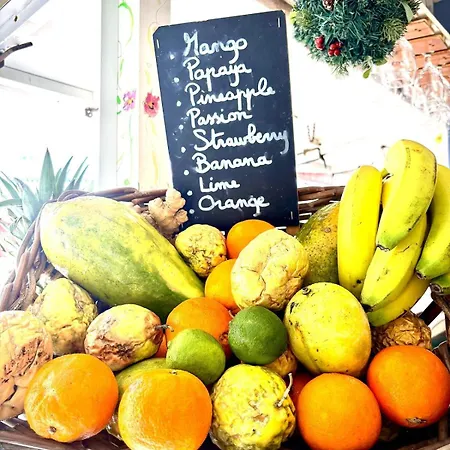 Mango
Papaya
Pineapple
Passion
Strawberry
Banana
Lime
Orange